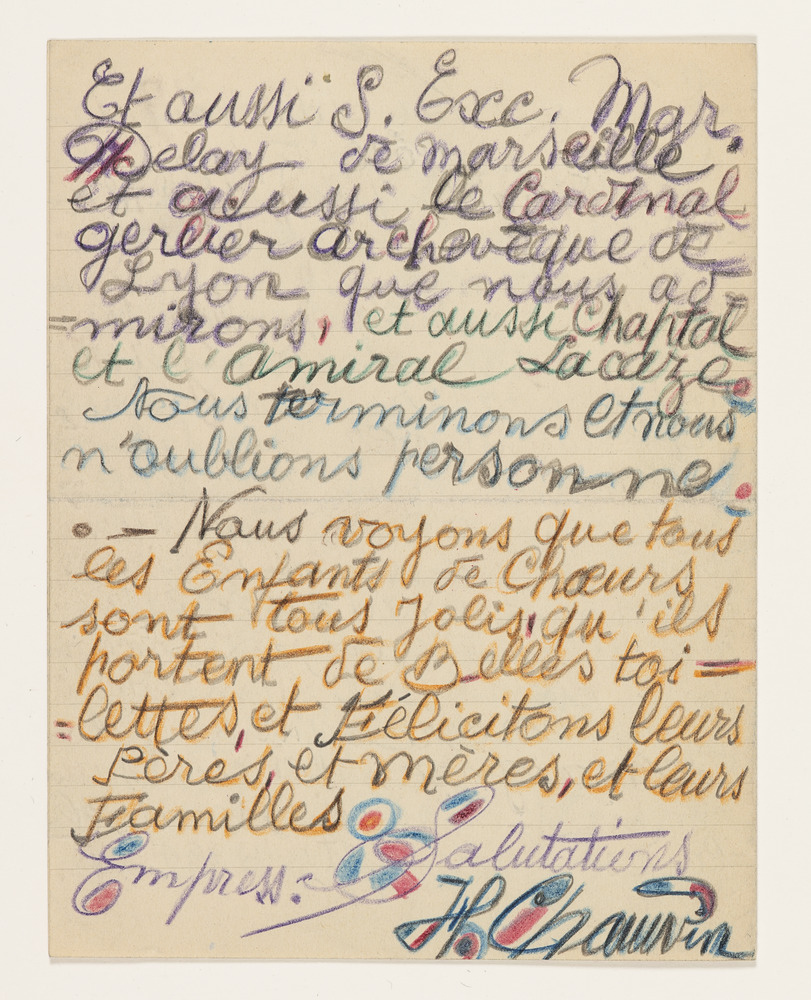 Et aussi S. Exc. Mgr.
Delay de marseille
et aussi le Cardinal
gerlier archevêque de
Lyon que nous ad-
=mirons, et aussi Chaptal
et l'amiral Lacaze.
Nous terminons et nous
n'oublions personne.
. — Nous voyons que tous
les Enfants de Chœurs
sont tous Jolis, qu'ils
portent de Belles toi=
=lettes, et Félicitons leurs
Pères, et mères, et leurs
Familles
Empress: Salutations
H. Chauvin